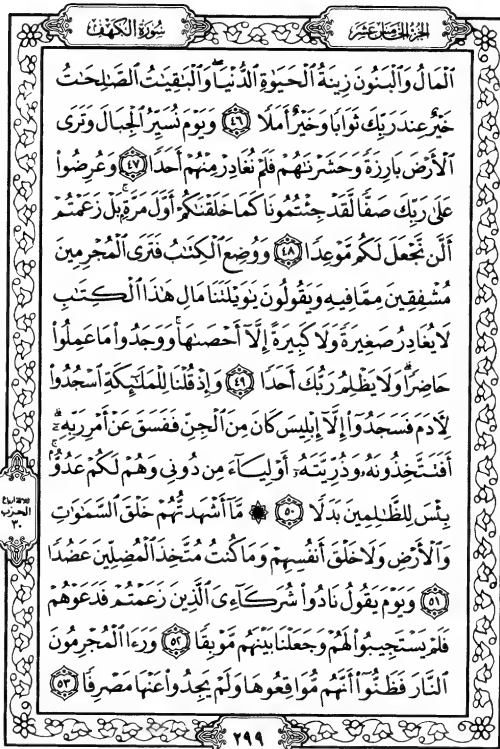 الجزء الخامس عشر
سورة الكهف
ٱلۡمَالُ وَٱلۡبَنُونَ زِينَةُ ٱلۡحَيَوٰةِ ٱلدُّنۡيَاۖ وَٱلۡبَٰقِيَٰتُ ٱلصَّٰلِحَٰتُ
خَيۡرٌ عِندَ رَبِّكَ ثَوَابٗا وَخَيۡرٌ أَمَلٗا ٤٦ وَيَوۡمَ نُسَيِّرُ ٱلۡجِبَالَ وَتَرَى
ٱلۡأَرۡضَ بَارِزَةٗ وَحَشَرۡنَٰهُمۡ فَلَمۡ نُغَادِرۡ مِنۡهُمۡ أَحَدٗا ٤٧ وَعُرِضُواْ
عَلَىٰ رَبِّكَ صَفّٗا لَّقَدۡ جِئۡتُمُونَا كَمَا خَلَقۡنَٰكُمۡ أَوَّلَ مَرَّةِۭۚ بَلۡ زَعَمۡتُمۡ
أَلَّن نَّجۡعَلَ لَكُم مَّوۡعِدٗا ٤٨ وَوُضِعَ ٱلۡكِتَٰبُ فَتَرَى ٱلۡمُجۡرِمِينَ
مُشۡفِقِينَ مِمَّا فِيهِ وَيَقُولُونَ يَٰوَيۡلَتَنَا مَالِ هَٰذَا ٱلۡكِتَٰبِ
لَا يُغَادِرُ صَغِيرَةٗ وَلَا كَبِيرَةً إِلَّآ أَحۡصَىٰهَاۚ وَوَجَدُواْ مَا عَمِلُواْ
حَاضِرٗاۗ وَلَا يَظۡلِمُ رَبُّكَ أَحَدٗا ٤٩ وَإِذۡ قُلۡنَا لِلۡمَلَٰٓئِكَةِ ٱسۡجُدُواْ
لِأٓدَمَ فَسَجَدُوٓاْ إِلَّآ إِبۡلِيسَ كَانَ مِنَ ٱلۡجِنِّ فَفَسَقَ عَنۡ أَمۡرِ رَبِّهِۦٓۗ
أَفَتَتَّخِذُونَهُۥ وَذُرِّيَّتَهُۥٓ أَوۡلِيَآءَ مِن دُونِي وَهُمۡ لَكُمۡ عَدُوُّۢۚ
بِئۡسَ لِلظَّٰلِمِينَ بَدَلٗا ٥٠ ۞ مَّآ أَشۡهَدتُّهُمۡ خَلۡقَ ٱلسَّمَٰوَٰتِ
وَٱلۡأَرۡضِ وَلَا خَلۡقَ أَنفُسِهِمۡ وَمَا كُنتُ مُتَّخِذَ ٱلۡمُضِلِّينَ عَضُدٗا
٥١ وَيَوۡمَ يَقُولُ نَادُواْ شُرَكَآءِيَ ٱلَّذِينَ زَعَمۡتُمۡ فَدَعَوۡهُمۡ
فَلَمۡ يَسۡتَجِيبُواْ لَهُمۡ وَجَعَلۡنَا بَيۡنَهُم مَّوۡبِقٗا ٥٢ وَرَءَا ٱلۡمُجۡرِمُونَ
ٱلنَّارَ فَظَنُّوٓاْ أَنَّهُم مُّوَاقِعُوهَا وَلَمۡ يَجِدُواْ عَنۡهَا مَصۡرِفٗا ٥٣
ثلاثة أرباع
الحزب
٣٠
٢٩٩